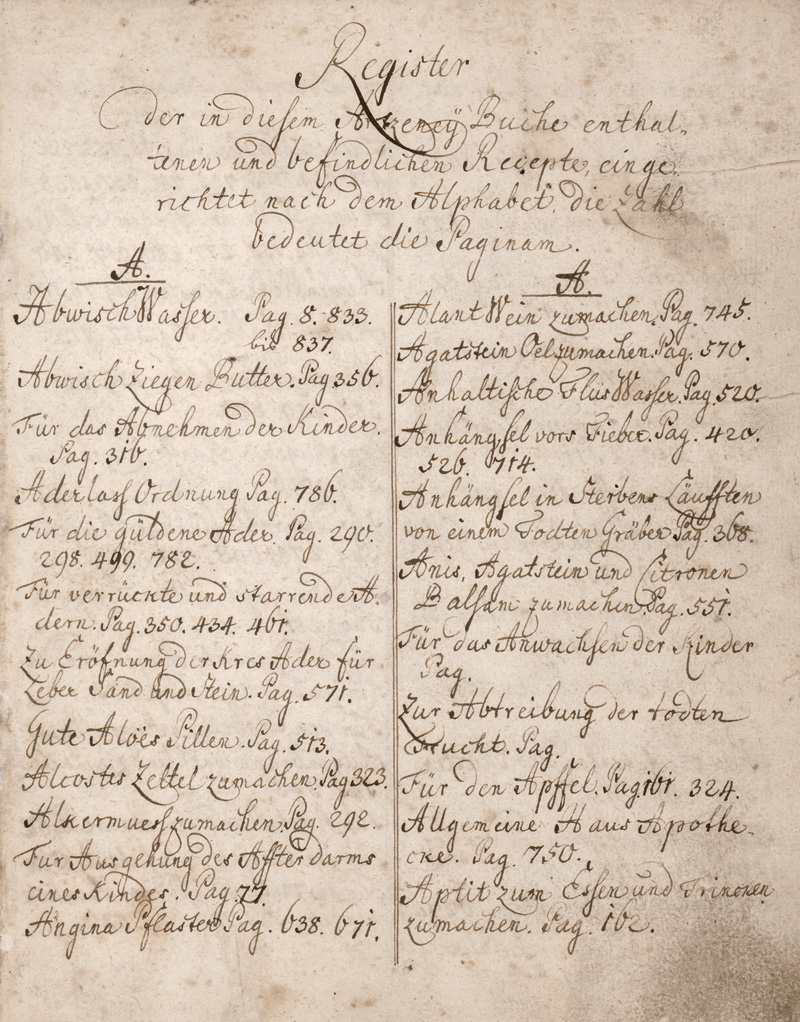 Register
der in diesem Artzeneÿ Buche enthal-
tenen und befindlichen Recepte, einge-
richtet nach dem Alphabet, die Zahl
bedeutet die Paginam.
A.
AbwischWasser. Pag. 8. 833.
bis 837.
Abwisch Ziegen Butter. Pag 356.
Für das Abnehmen der Kinder.
Pag. 316.
Aderlass Ordnung Pag. 786.
Für die güldene Ader. Pag. 290.
298. 499. 782.
Für verrückte und starrende A-
dern. Pag. 350. 434. 461.
Zu Eröfnung der Ader für
Leber Sand und Stein. Pag. 571.
Gute Aloës Pillen. Pag. 513.
Zettel zumachen. Pag 323.
zumachen. Pag. 292.
Für Ausgehung des Affter darms
eines Kindes. Pag. 77.
Angina Pflaster Pag. 638. 671.
A.
Alant Wein zumachen. Pag. 745.
Agatstein Oel zumachen. Pag. 570.
Anhaltische FlusWasser. Pag. 520.
Anhängsel vors Fieber. Pag. 420.
526. 714.
Anhängsel in Sterbens Läufften
von einem Todten Gräber Pag. 368.
Anis, Agatstein und Citronen
Balsam zumachen. Pag. 551.
Für das Anwachsen der Kinder
Pag.
Zur Abtreibung der todten
Frucht. Pag.
Für den Apffel. Pag. 161. 324.
Allgemeine Haus Apothe-
cke. Pag. 750.
Aptit zum Essen und Trincken
zumachen. Pag. 162.